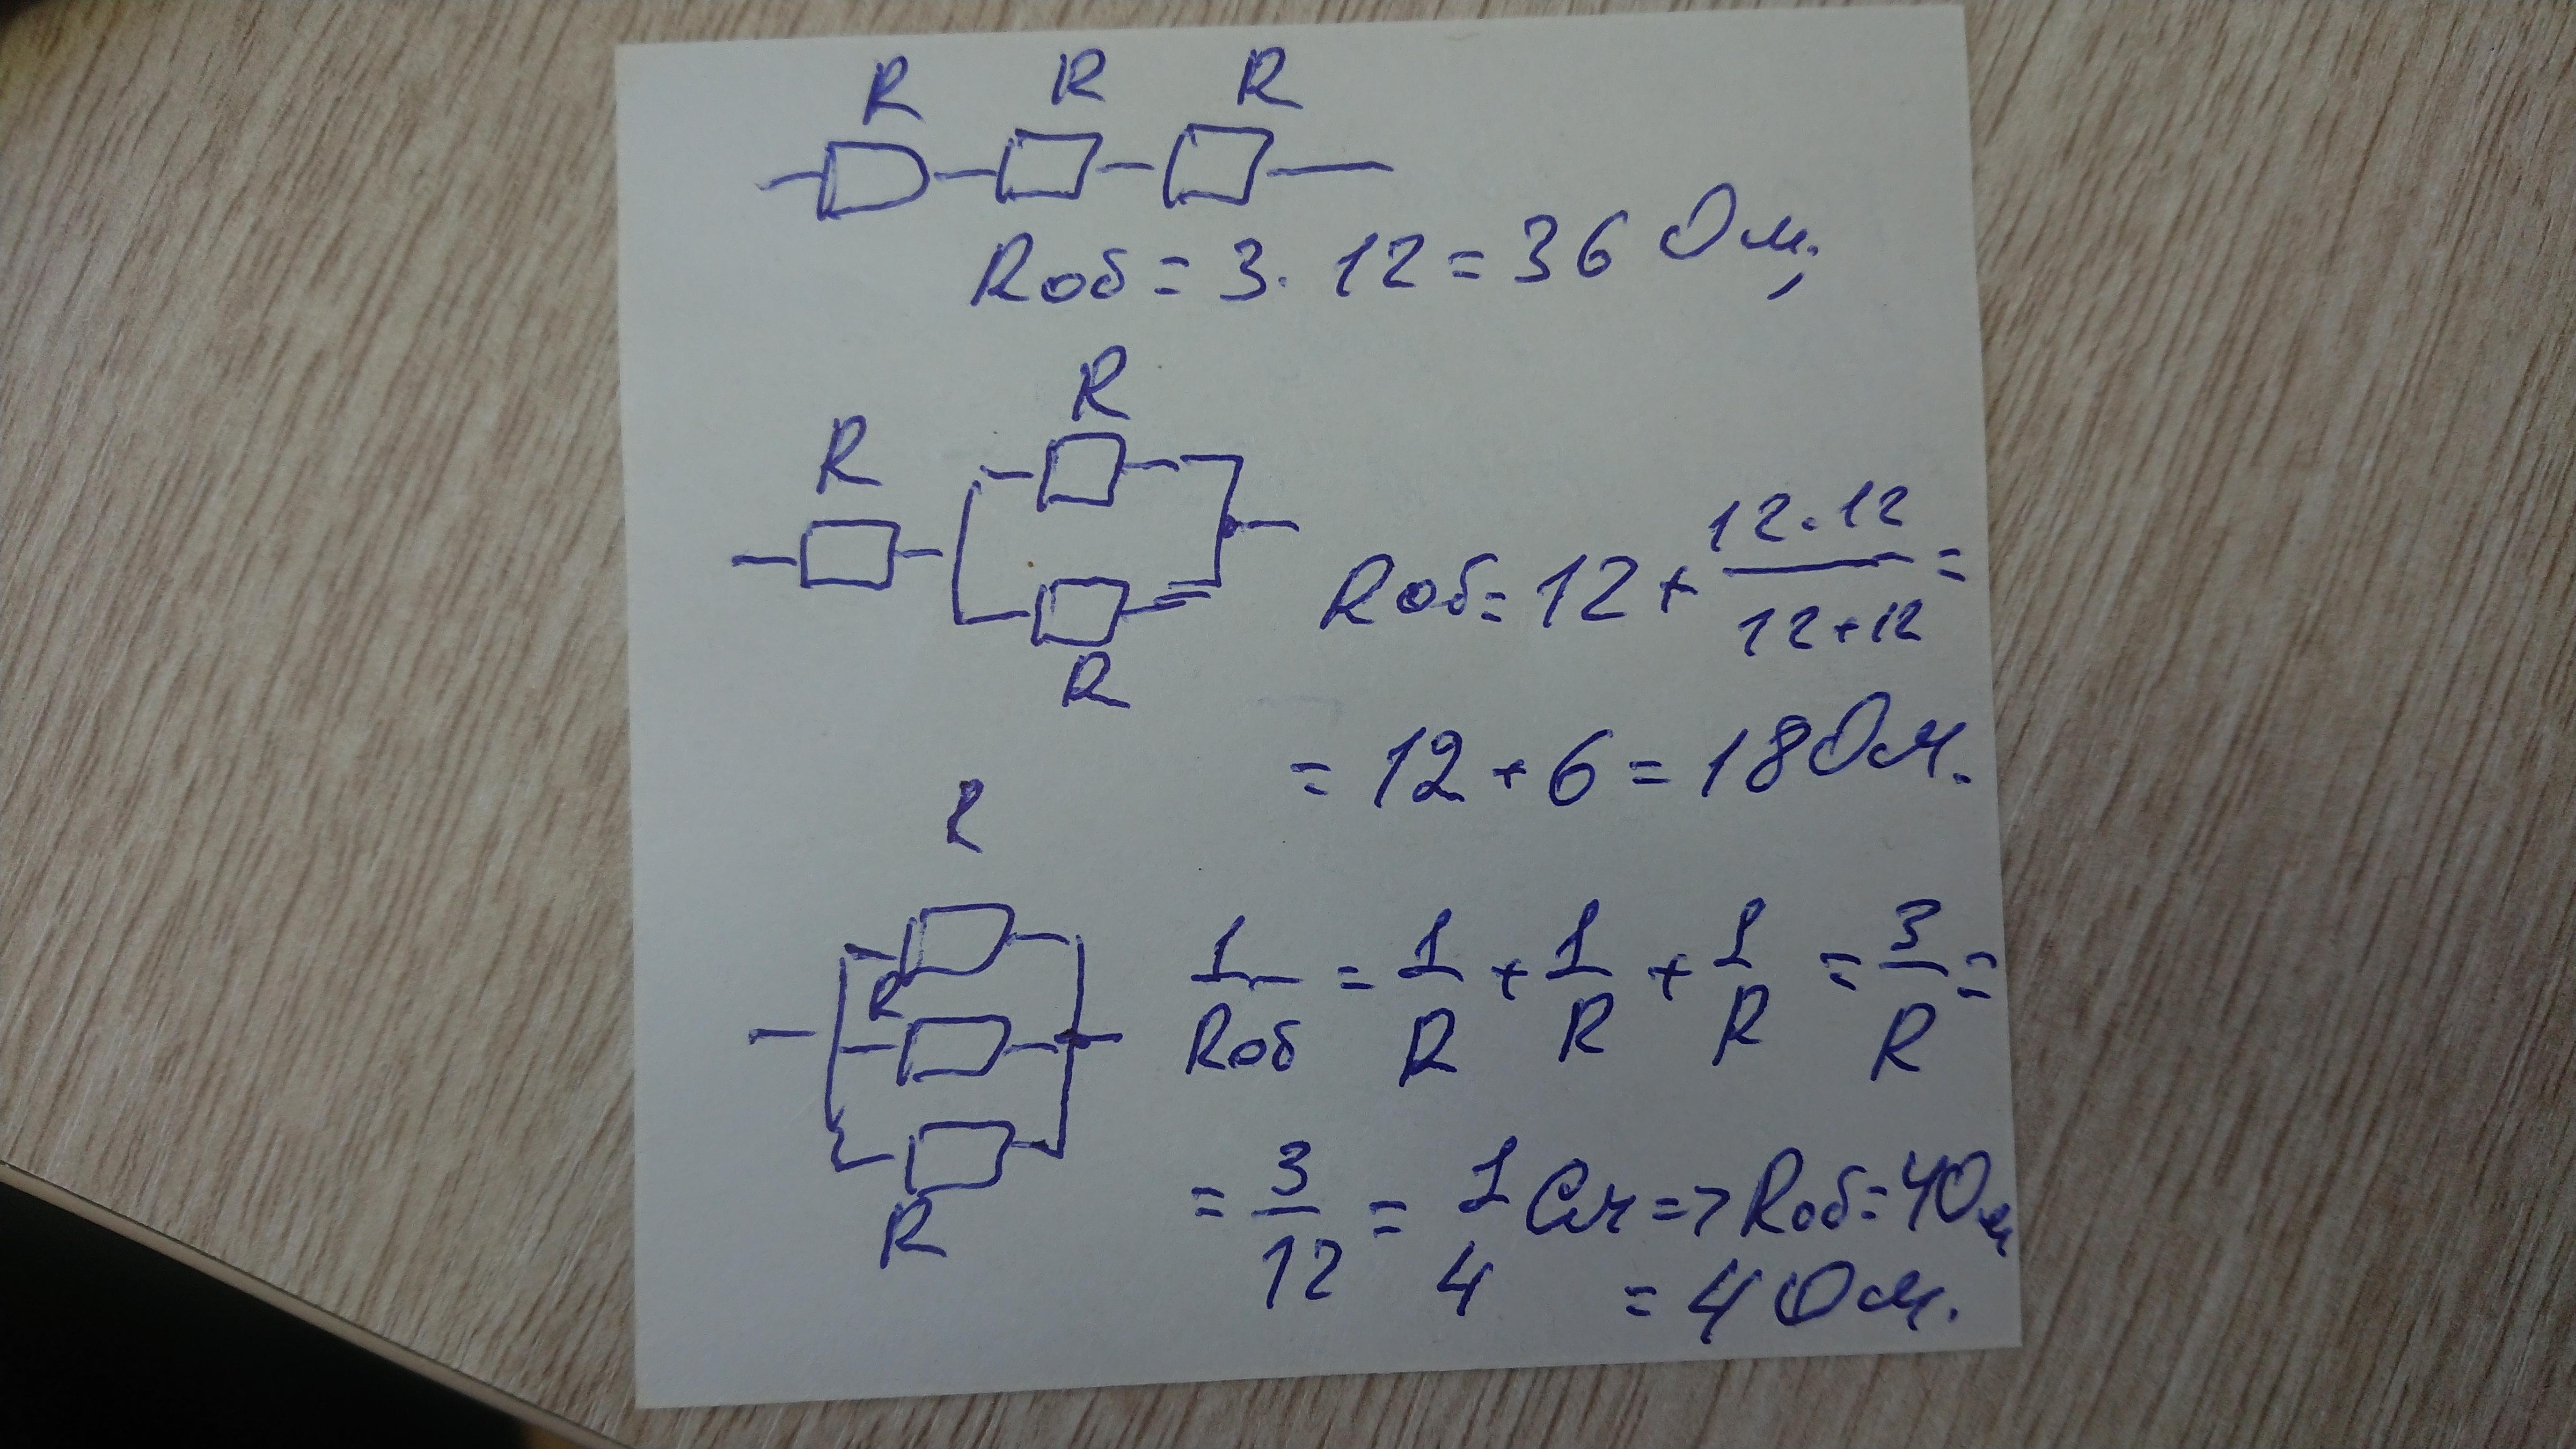 R R R
Rоб = 3 · 12 = 36 Ом,
R
R
Rоб = 12 + 12·12 / 12+12 =
R
= 12 + 6 = 18 Ом.
R
R
1/Rоб = 1/R + 1/R + 1/R = 3/R =
= 3/12 = 1/4 См => Rоб = 4Ом
R
= 4 Ом.